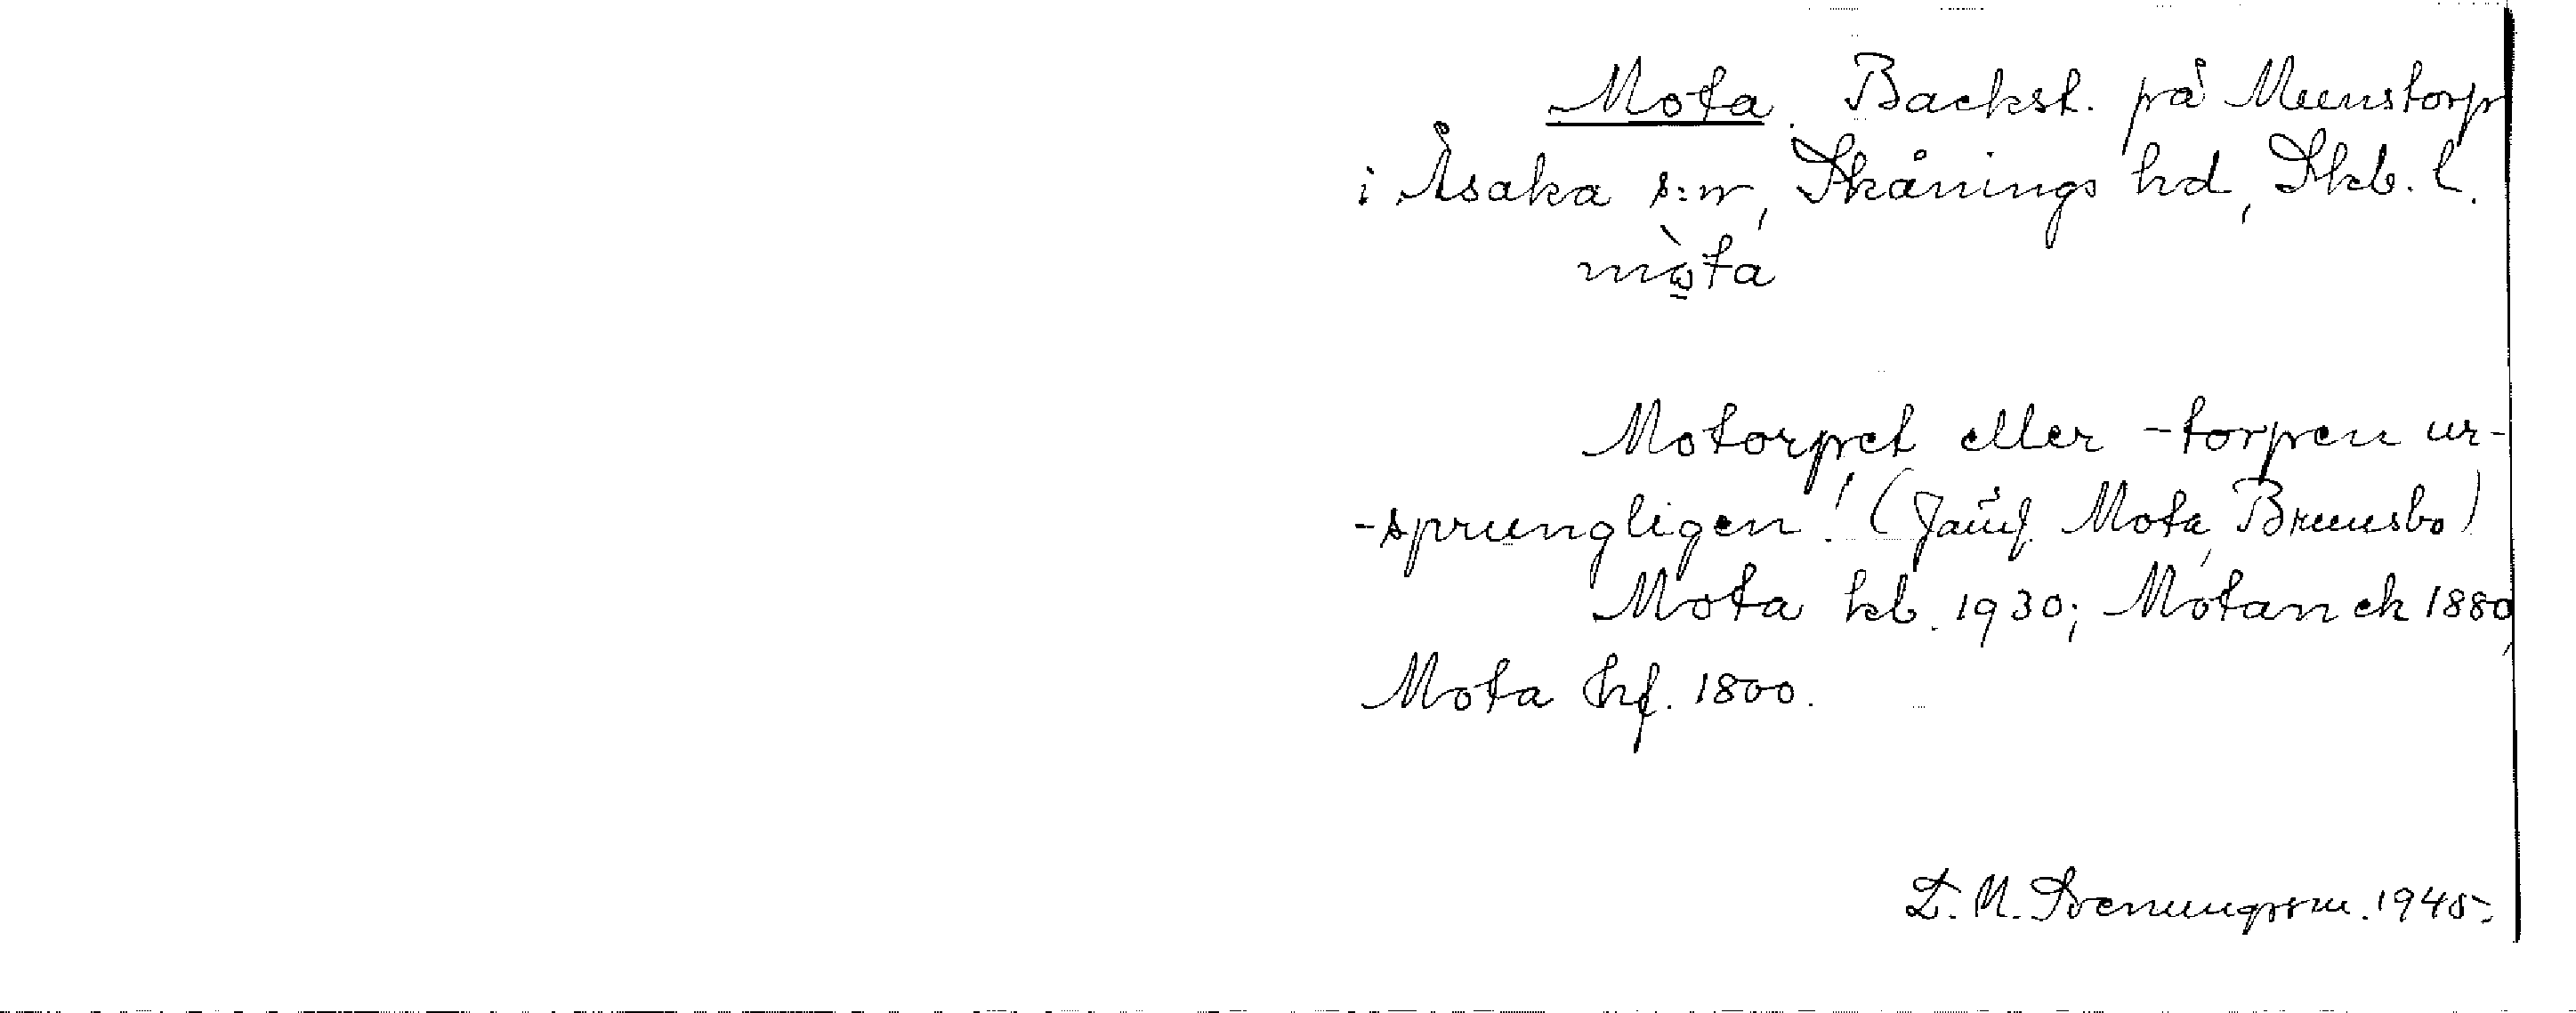 Mota. Backst. på Munstorp
i Åsaka s:n, Skånings hd, Skb. l.
mòta
Motorpet eller -torpen ur-
-sprungligen! (Jämf. Mota, Brunsbo)
Mota kb. 1930; Motan ek 1880,
Mota hf. 1800.
D. M. Svenungsson. 1945.